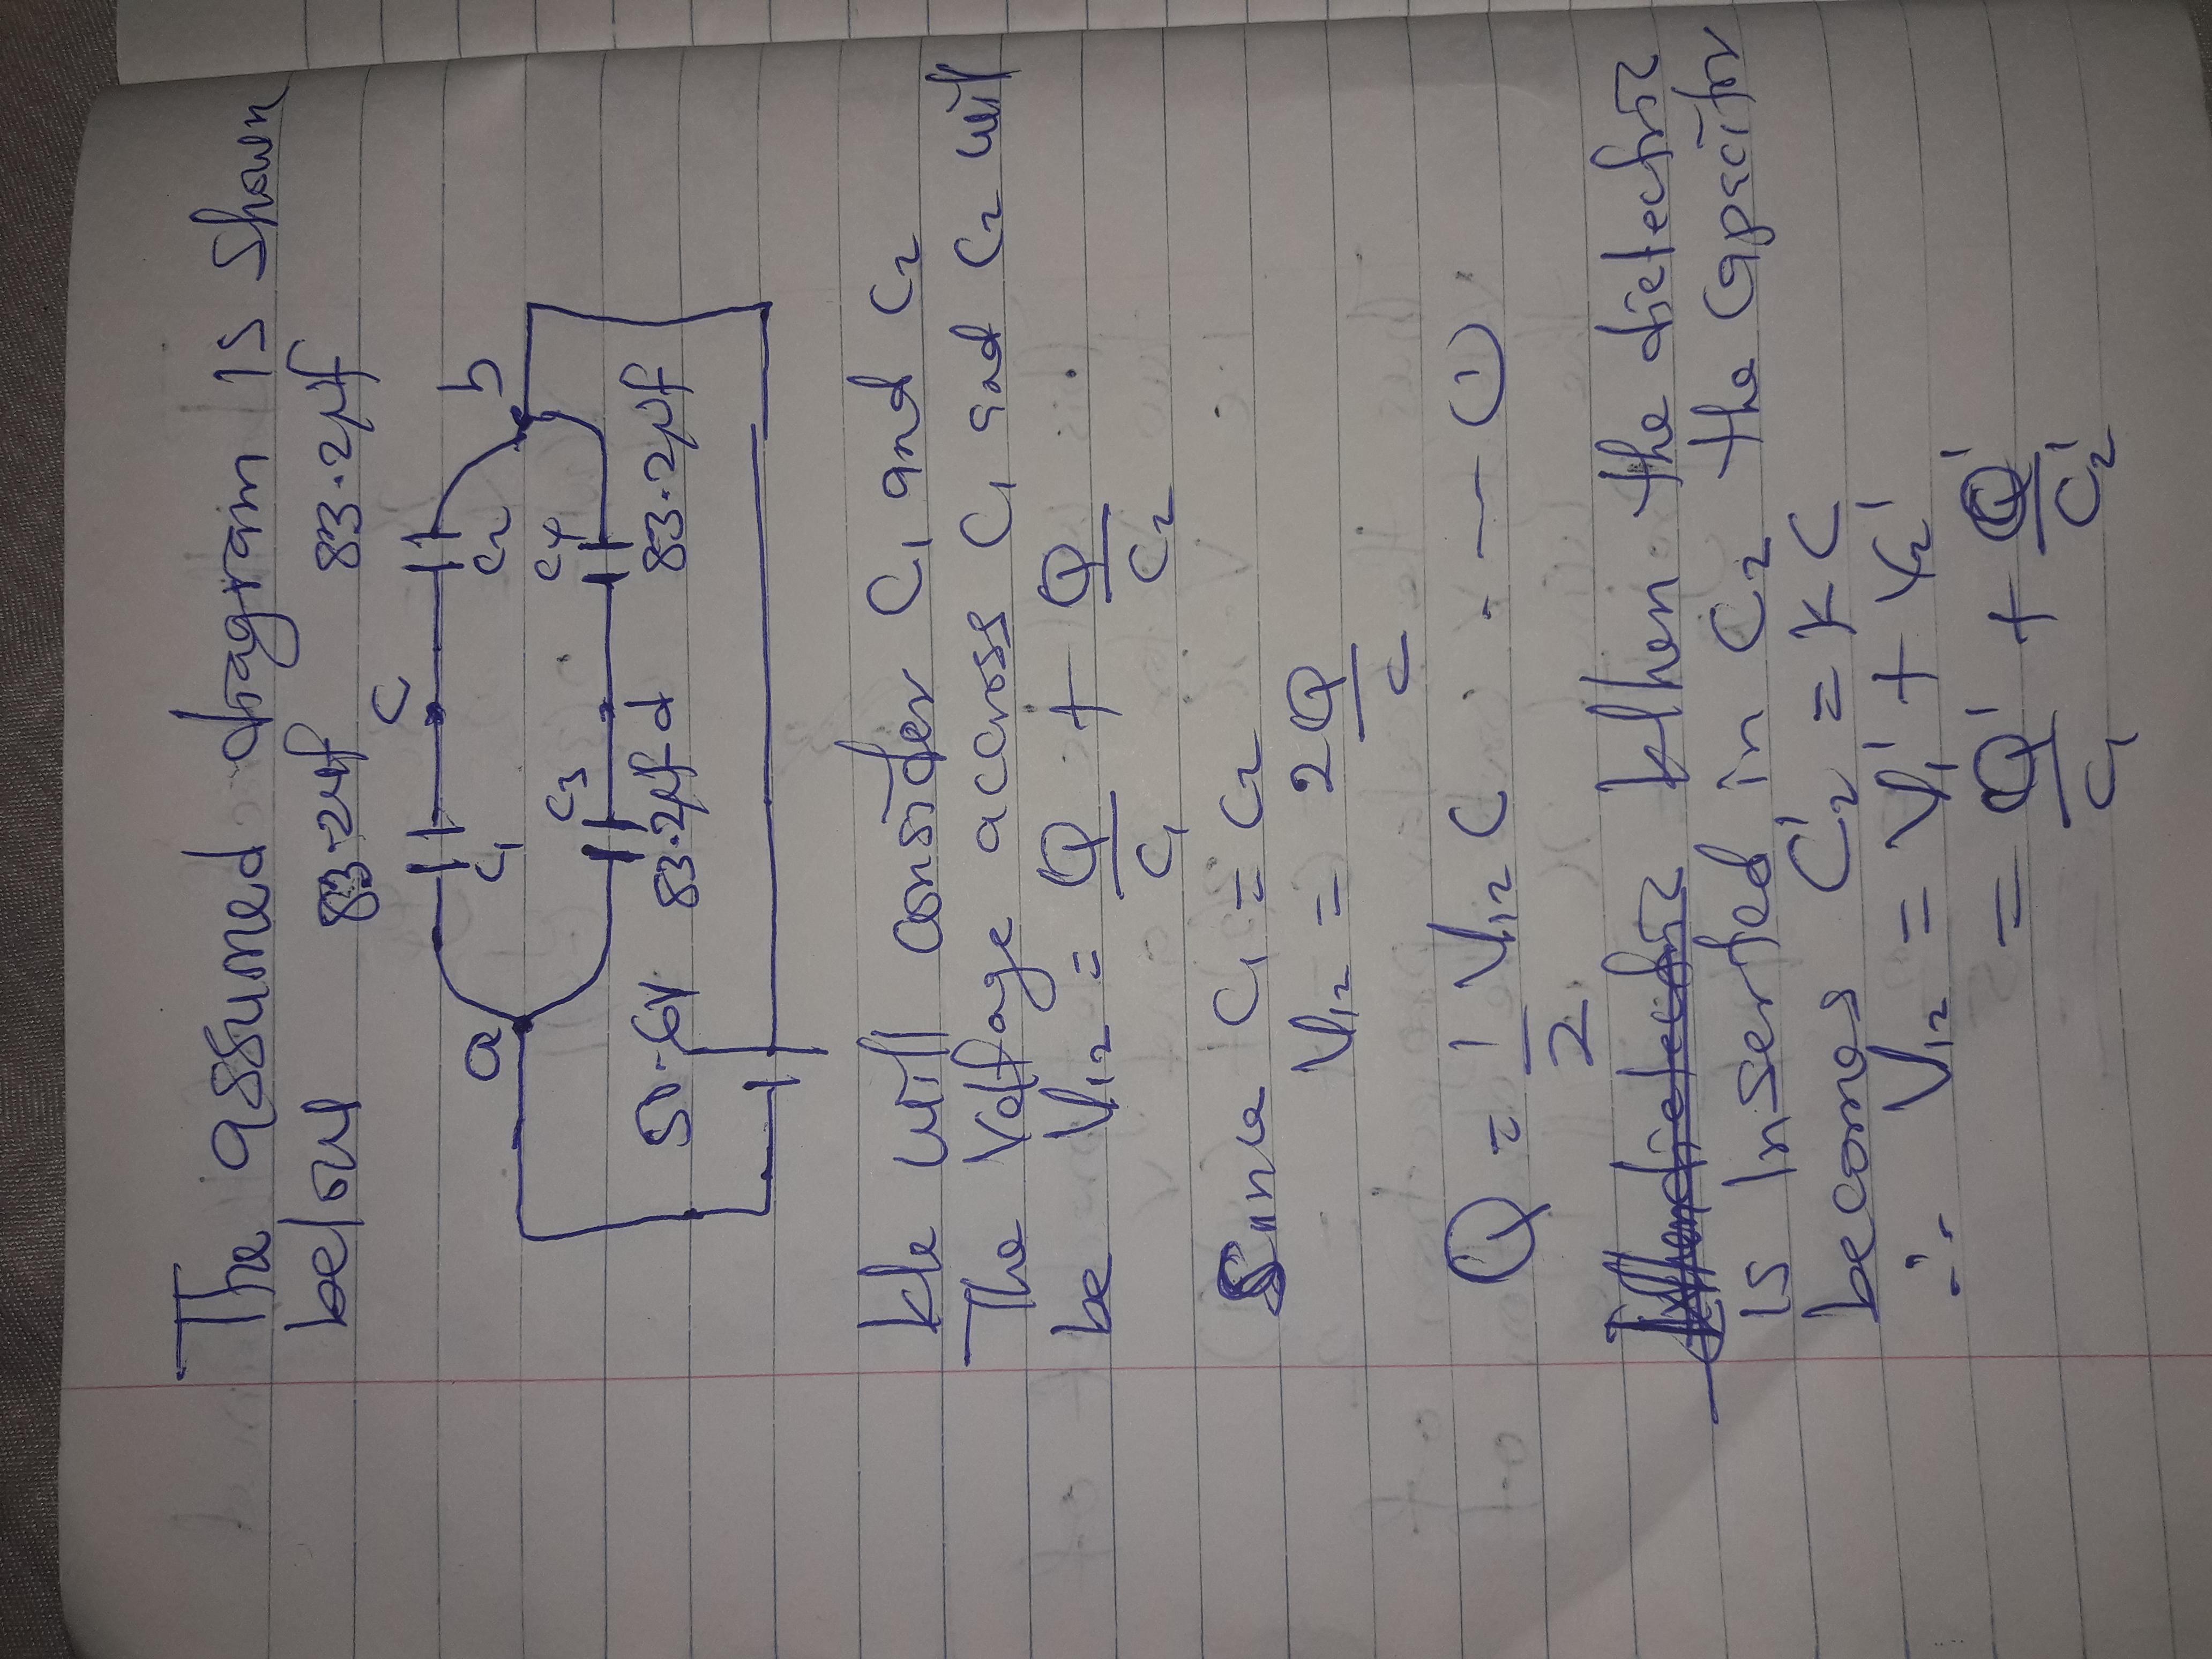 The assumed diagram is shown
below 83.2μf 83.2μf
c
a b
C₁ C₂
C₃ C₄
50.6V 83.2μf d 83.2μf
We will consider C₁ and C₂
The Voltage across C₁ and C₂ will
be V₁₂ = Q/C₁ + Q/C₂
Since C₁ = C₂
V₁₂ = 2Q/C
Q = 1/2 V₁₂ C . - - ①
When the dielectric
is Inserted in C₂ the Capacitor
becomes C₂' = KC
∴ V₁₂ = V₁' + V₂'
= Q'/C₁ + Q'/C₂'